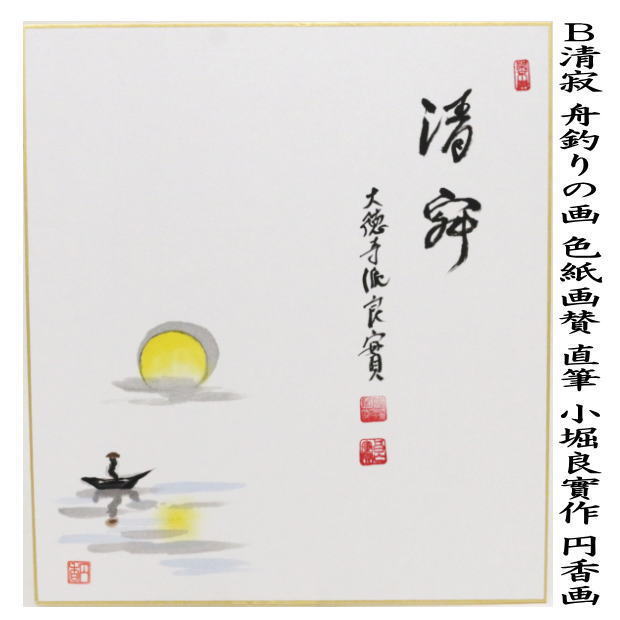 B清寂 舟釣りの画 色紙画賛 直筆 小堀良實作 円香画
清寂
大徳寺派良實